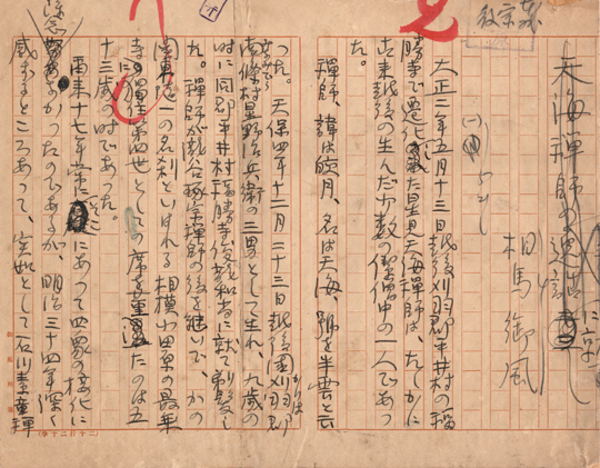 天海禅師の遺書に就て
相馬御風
(一)
大正二年五月十三日越後刈羽郡平井村の福
勝寺で遷化した星見天海禅師は、たしかに
古来越後の生んだ少数の傑僧中の一人であっ
た。
禅師、諱は皎月、名は天海、號を半雲と云
った。天保四年十二月二十三日越後国刈羽郡
條村星野治兵衛の三男として生れ、九歳の
時に同郡平井村福勝寺俊嶽和尚に就て剃髪し
た。禅師が瀧谷琢宗禅師の後を継いで、かの
関東随一の名刹といはれる相模小田原の最乗
寺に独住第四世としての席を董したのは五
十三歳の時であった。
爾来十七年常にそこにあって四衆の接化に
念なかったのであるが、明治三十四年深く
感ずるところあって、突如として石川素童禅